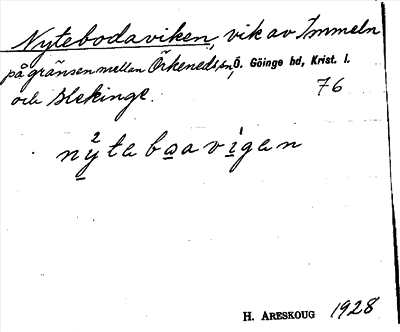 Nytebodaviken, vik av Immeln
på gränsen mellan Örkened sn, Ö. Göinge hd, Krist. l.
och Blekinge. 76
nỳtebɷaví̱gen
H. ARESKOUG 1928